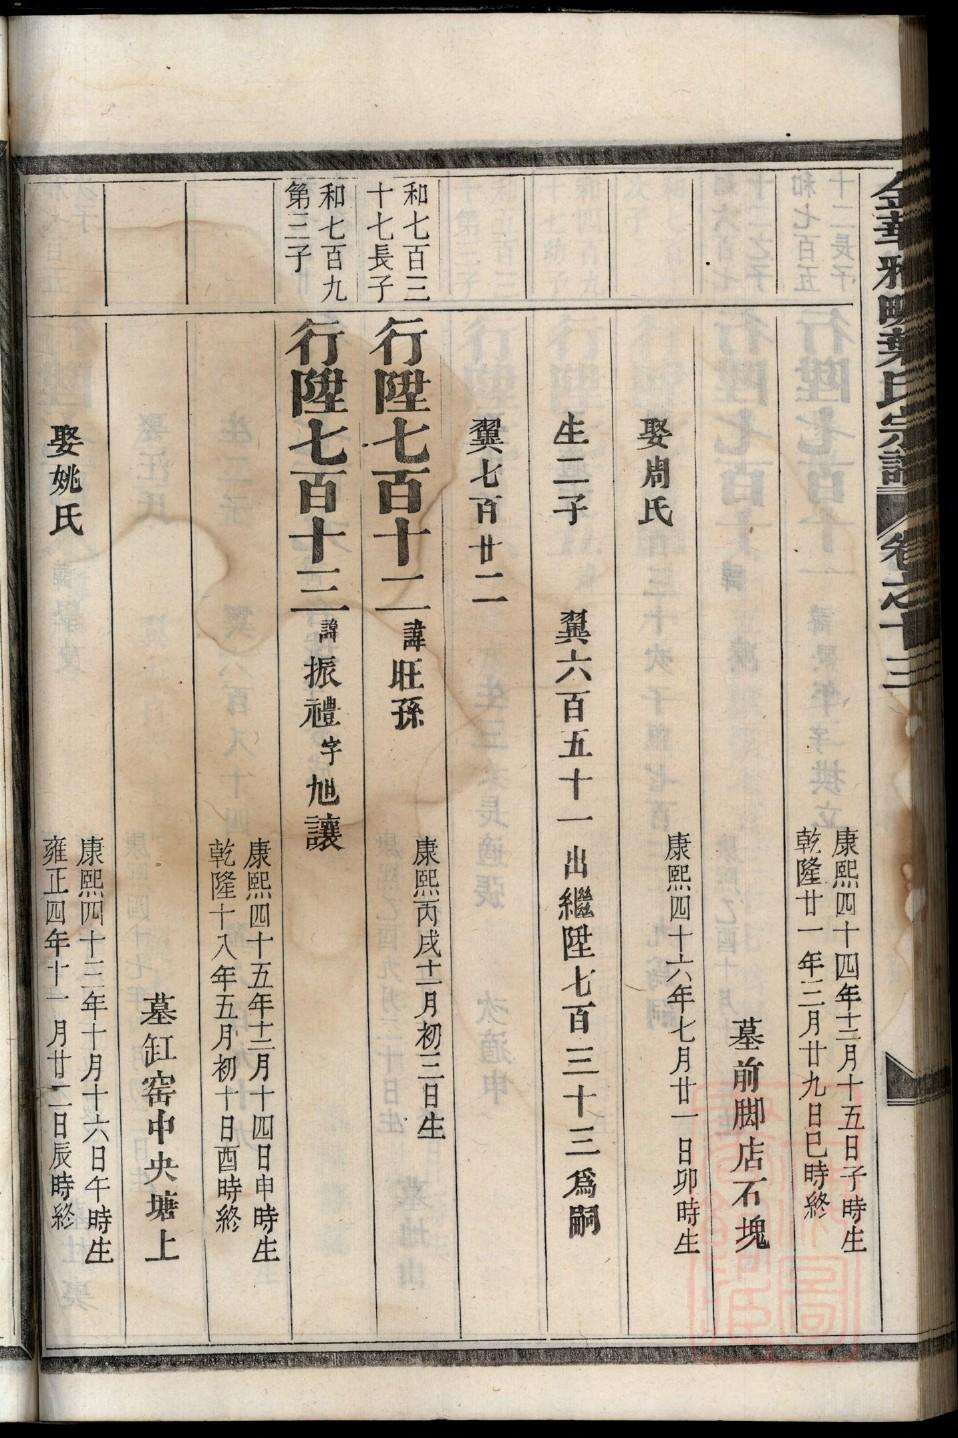 金華雅畈葉氏宗譜 卷之十三
康熙四十四年十二月十五日子時生
乾隆廿一年三月廿九日巳時終
墓前脚店石塊
娶周氏 康熙四十六年七月廿一日卯時生
生二子 翼六百五十一出繼陞七百三十三爲嗣
翼七百廿二
和七百三十七長子
行陞七百十二 諱旺孫 康熙丙戌十一月初三日生
和七百九第三子
行陞七百十三 諱振禮字旭讓
康熙四十五年十二月十四日申時生
乾隆十八年五月初十日酉時終
墓缸窰中央塘上
娶姚氏 康熙四十三年十月十六日午時生
雍正四年十一月廿二日辰時終